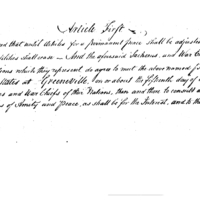 Article First
ed that until Articles for a permanent peace shall be adjusted
tilities shall cease – And the aforesaid Sachems, and War C
tions which they represent do agree to meet the above named
States at Greenville, on or about the fifteenth day of
es and War Chiefs of their Nations, then and there to consult a
es of Amity and peace, as shall be for the Interest, and to th